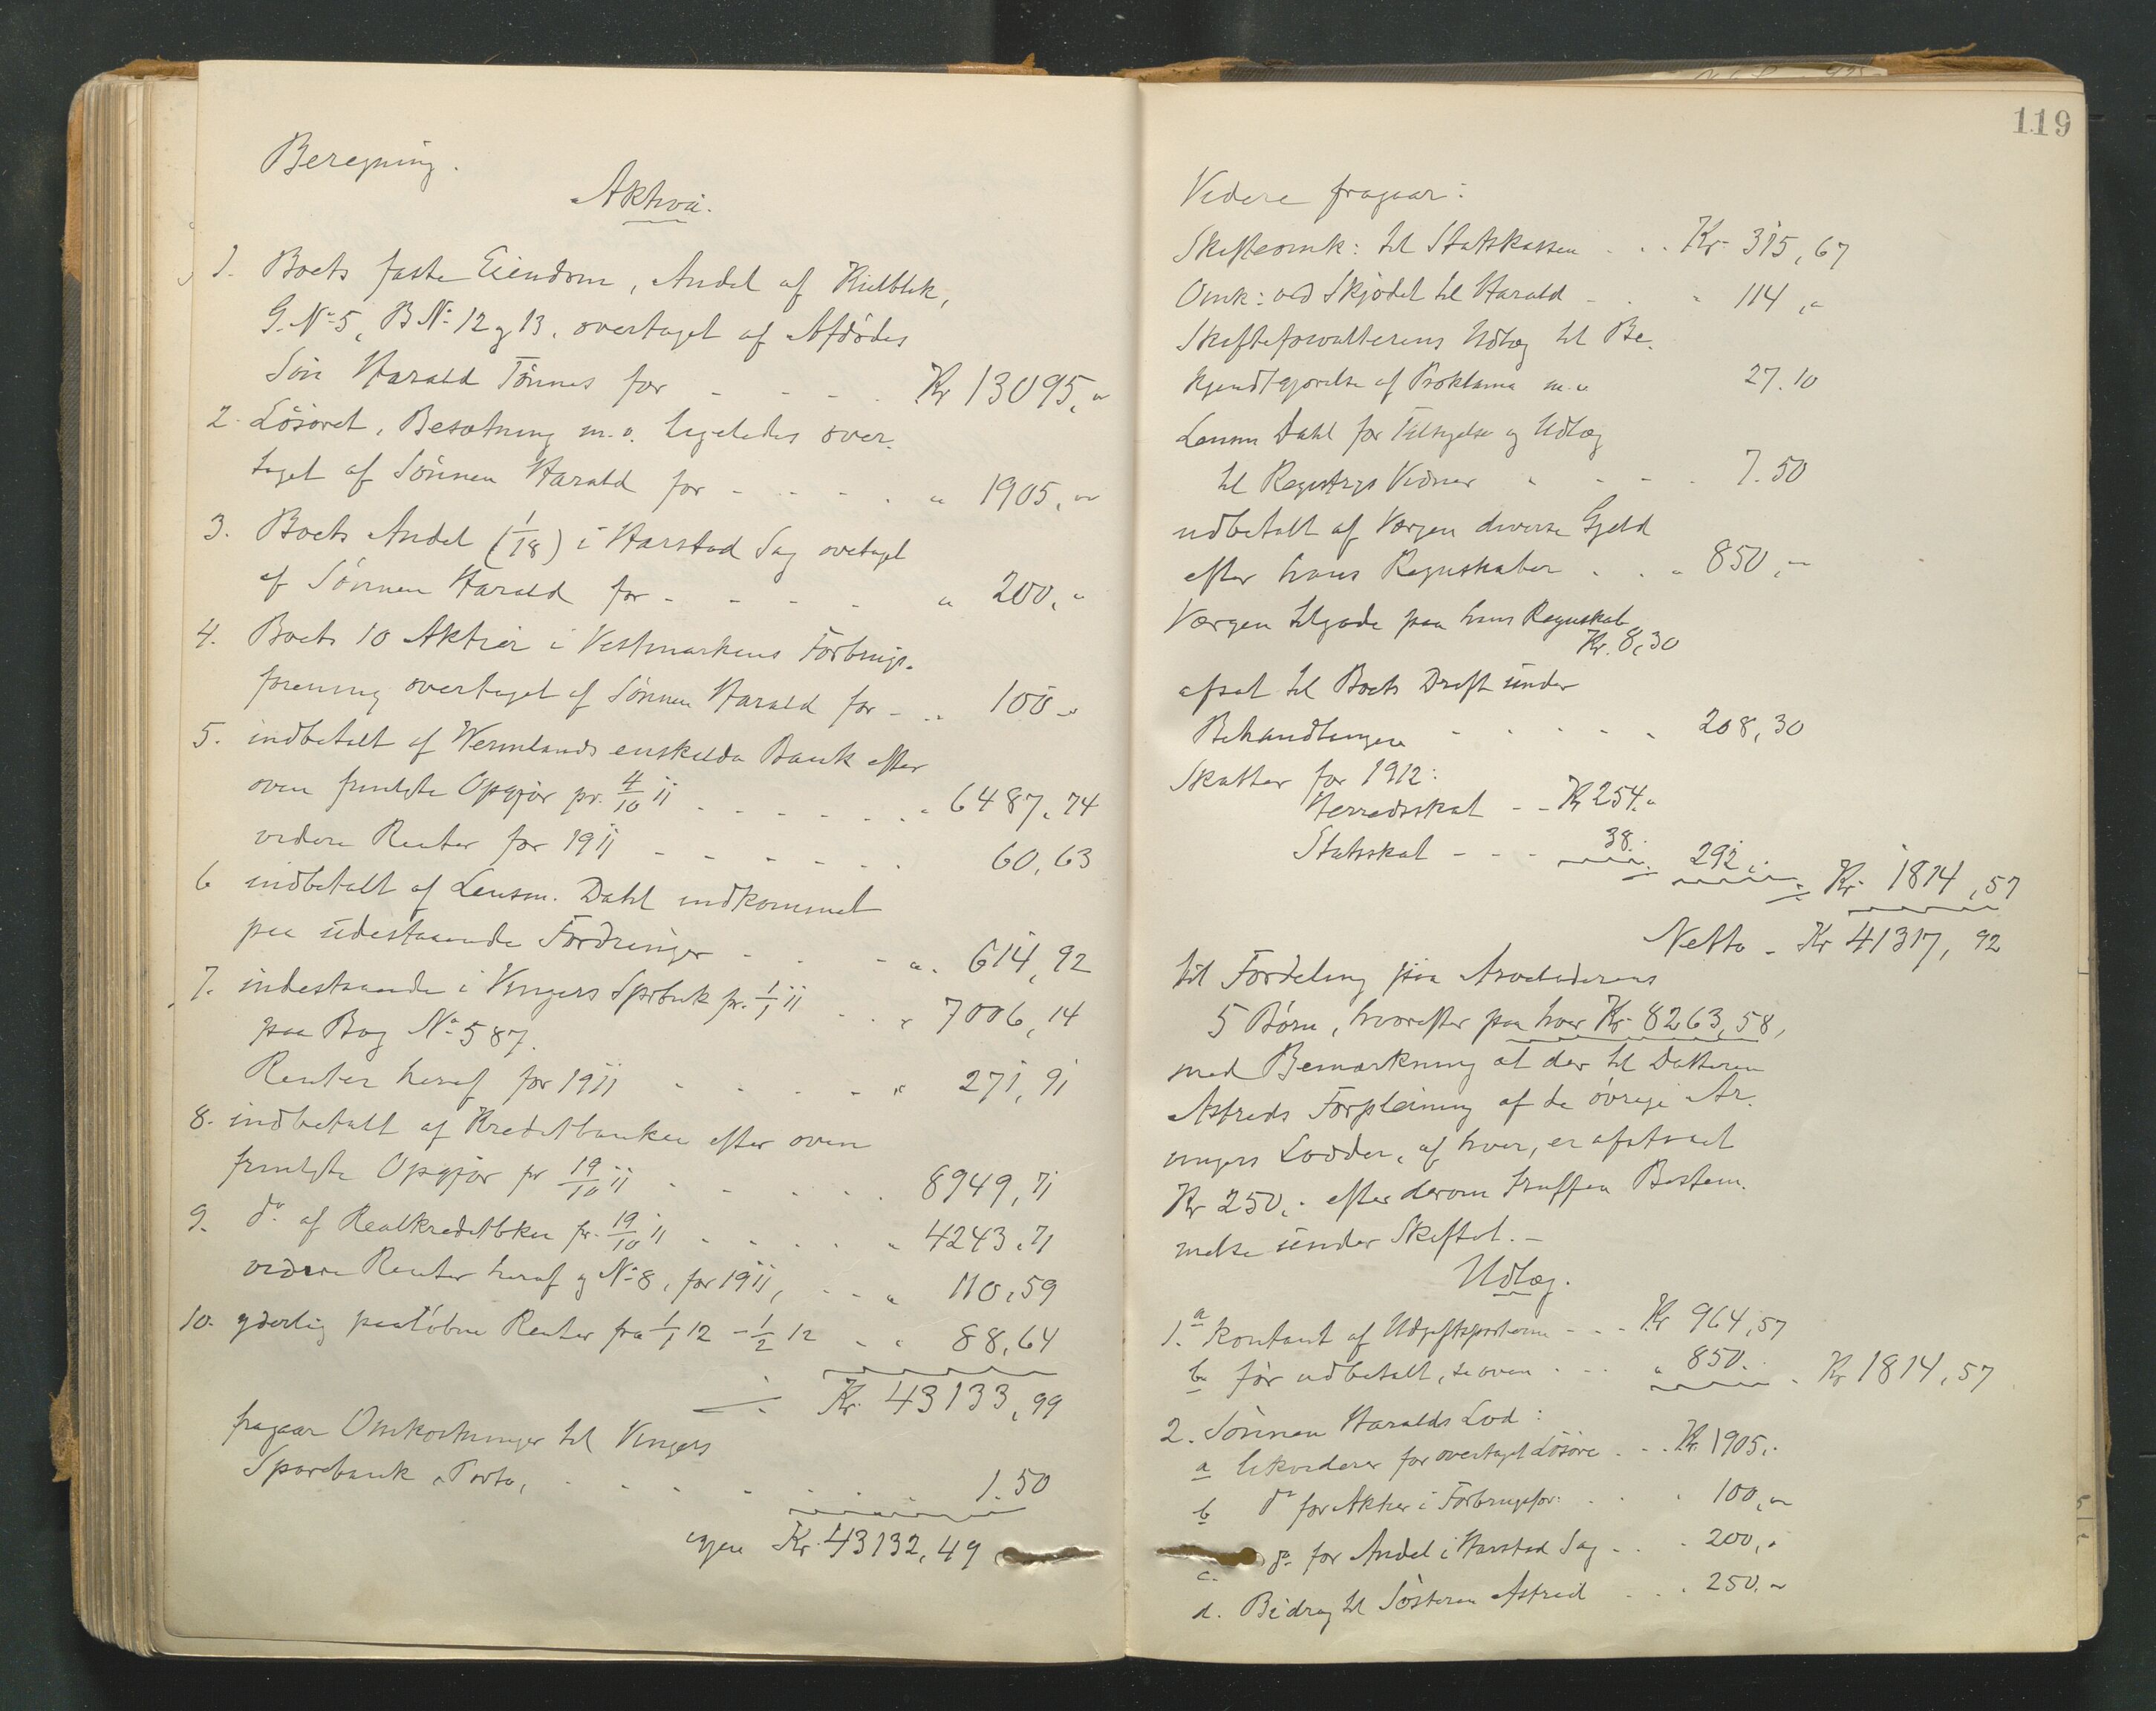 Beregning.
Aktiva.
1. Boets faste Eiendom, Andel af Kielblek,
G. No 5, B No 12 og 13, overtaget af Afdødes
Søn Harald Tønnes for - - - - Kr 13095,"
2. Løsøret, Besætning m.v. ligeledes over-
taget af Sønnen Harald for - - - - " 1905,"
3. Boets Andel (1/18) i Harstad Sag overtaget
af Sønnen Harald for - - - - " 200,"
4. Boets 10 Aktier i Vestmarkens Forbrugs-
forening overtaget af Sønnen Harald for - - " 100 "
5. indbetalt af Wermlands enskilda Bank efter
oven fremlagte Opgjør pr. 4/10 11 - - - - - - " 6487,74
videre Renter for 1911 - - - - - - 60,63
6 indbetalt af Lensm. Dahl indkommet
paa udestaaende Fordringer - - - " 614,92
7. indestaaende i Vingers Sprbnk pr. 1/1 11 - - " 7006,14
paa Bog No 587.
Renter heraf for 1911 - - - - " 271,91
8. indbetalt af Kreditbanken efter oven
fremlagte Opgjør pr 19/10 11 - - - - - 8949,71
9. do af Realkreditbken pr. 19/10 11 - - - - - " 4243,71
videre Renter heraf og No 8, for 1911, - - " 110,59
10. yderlig paaløbne Renter fra 1/1 12 - 1/2 12 - " 88,64
÷ Kr. 43133,99
fragaar Omkostninger til Vingers
Sparebank, Porto, - - - - - - 1.50
igjen Kr. 43132,49
119
Videre fragaar:
Skifteomk: til Statskassen - - - Kr 315,67
Omk: ved Skjødet til Harald - - " 114 ,"
Skifteforvalterens Udlæg til Be-
kjendtgjørelse af Proklama m.v. 27.10
Lensm Dahl for Tilsigelse og Udlæg
til Registrgs Vidner " - - - 7.50
udbetalt af Værgen diverse Gjeld
efter hans Regnskaber - - " 850,"
Værgen tilgode paa hans Regnskab
Kr. 8,30
afsat til Boets Drift under
Behandlingen - - - - - 208,30
Skatter for 1912:
Herredsskat - - Kr 254."
Statsskat - - - 38. 292 ÷ Kr 1814,57
Netto - Kr 41317,92
til Fordeling paa Arveladerens
5 Børn, hvorefter paa hver Kr 8263,58,
med Bemærkning at der til Datteren
Astrids Forpleining af de øvrige Ar-
vingers Lodder, af hver, er afstaaet
Kr 250,- efter derom truffen Bestem-
melse under Skiftet. -
Udlæg.
1. a kontant af Udgiftsposterne - - - Kr 964,57
b før udbetalt, se oven - - - " 850. - Kr 1814,57
2. Sønnen Haralds Lod:
a likviderer for overtaget Løsøre - - Kr 1905,-
b do for Aktier i Forbrugsfor: - - 100,"
c. do for Andel i Harstad Sag - - - 200,"
d. Bidrag til Søsteren Astrid - - - 250,"